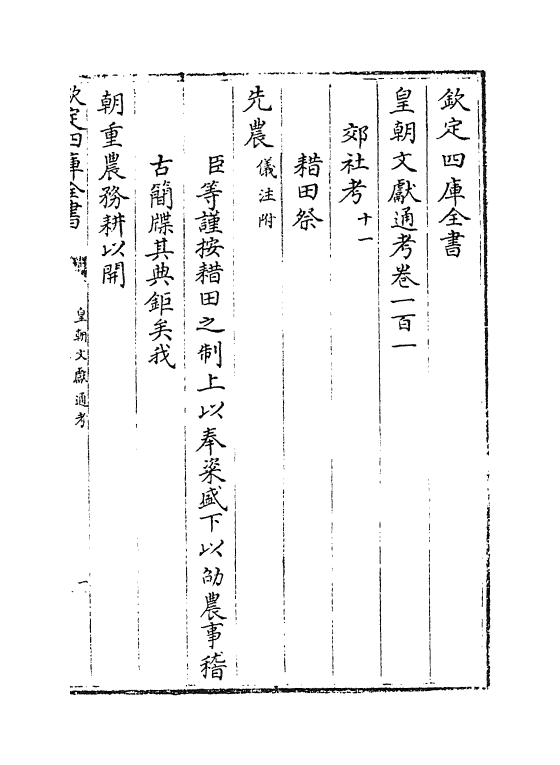 欽定四庫全書
皇朝文獻通考卷一百一
郊社考十一
耤田祭
先農儀注附
臣等謹按耤田之制上以奉粢盛下以劭農事稽
古簡牒其典鉅矣我
朝重農務耕以開
欽定四庫全書
皇朝文獻通考
一